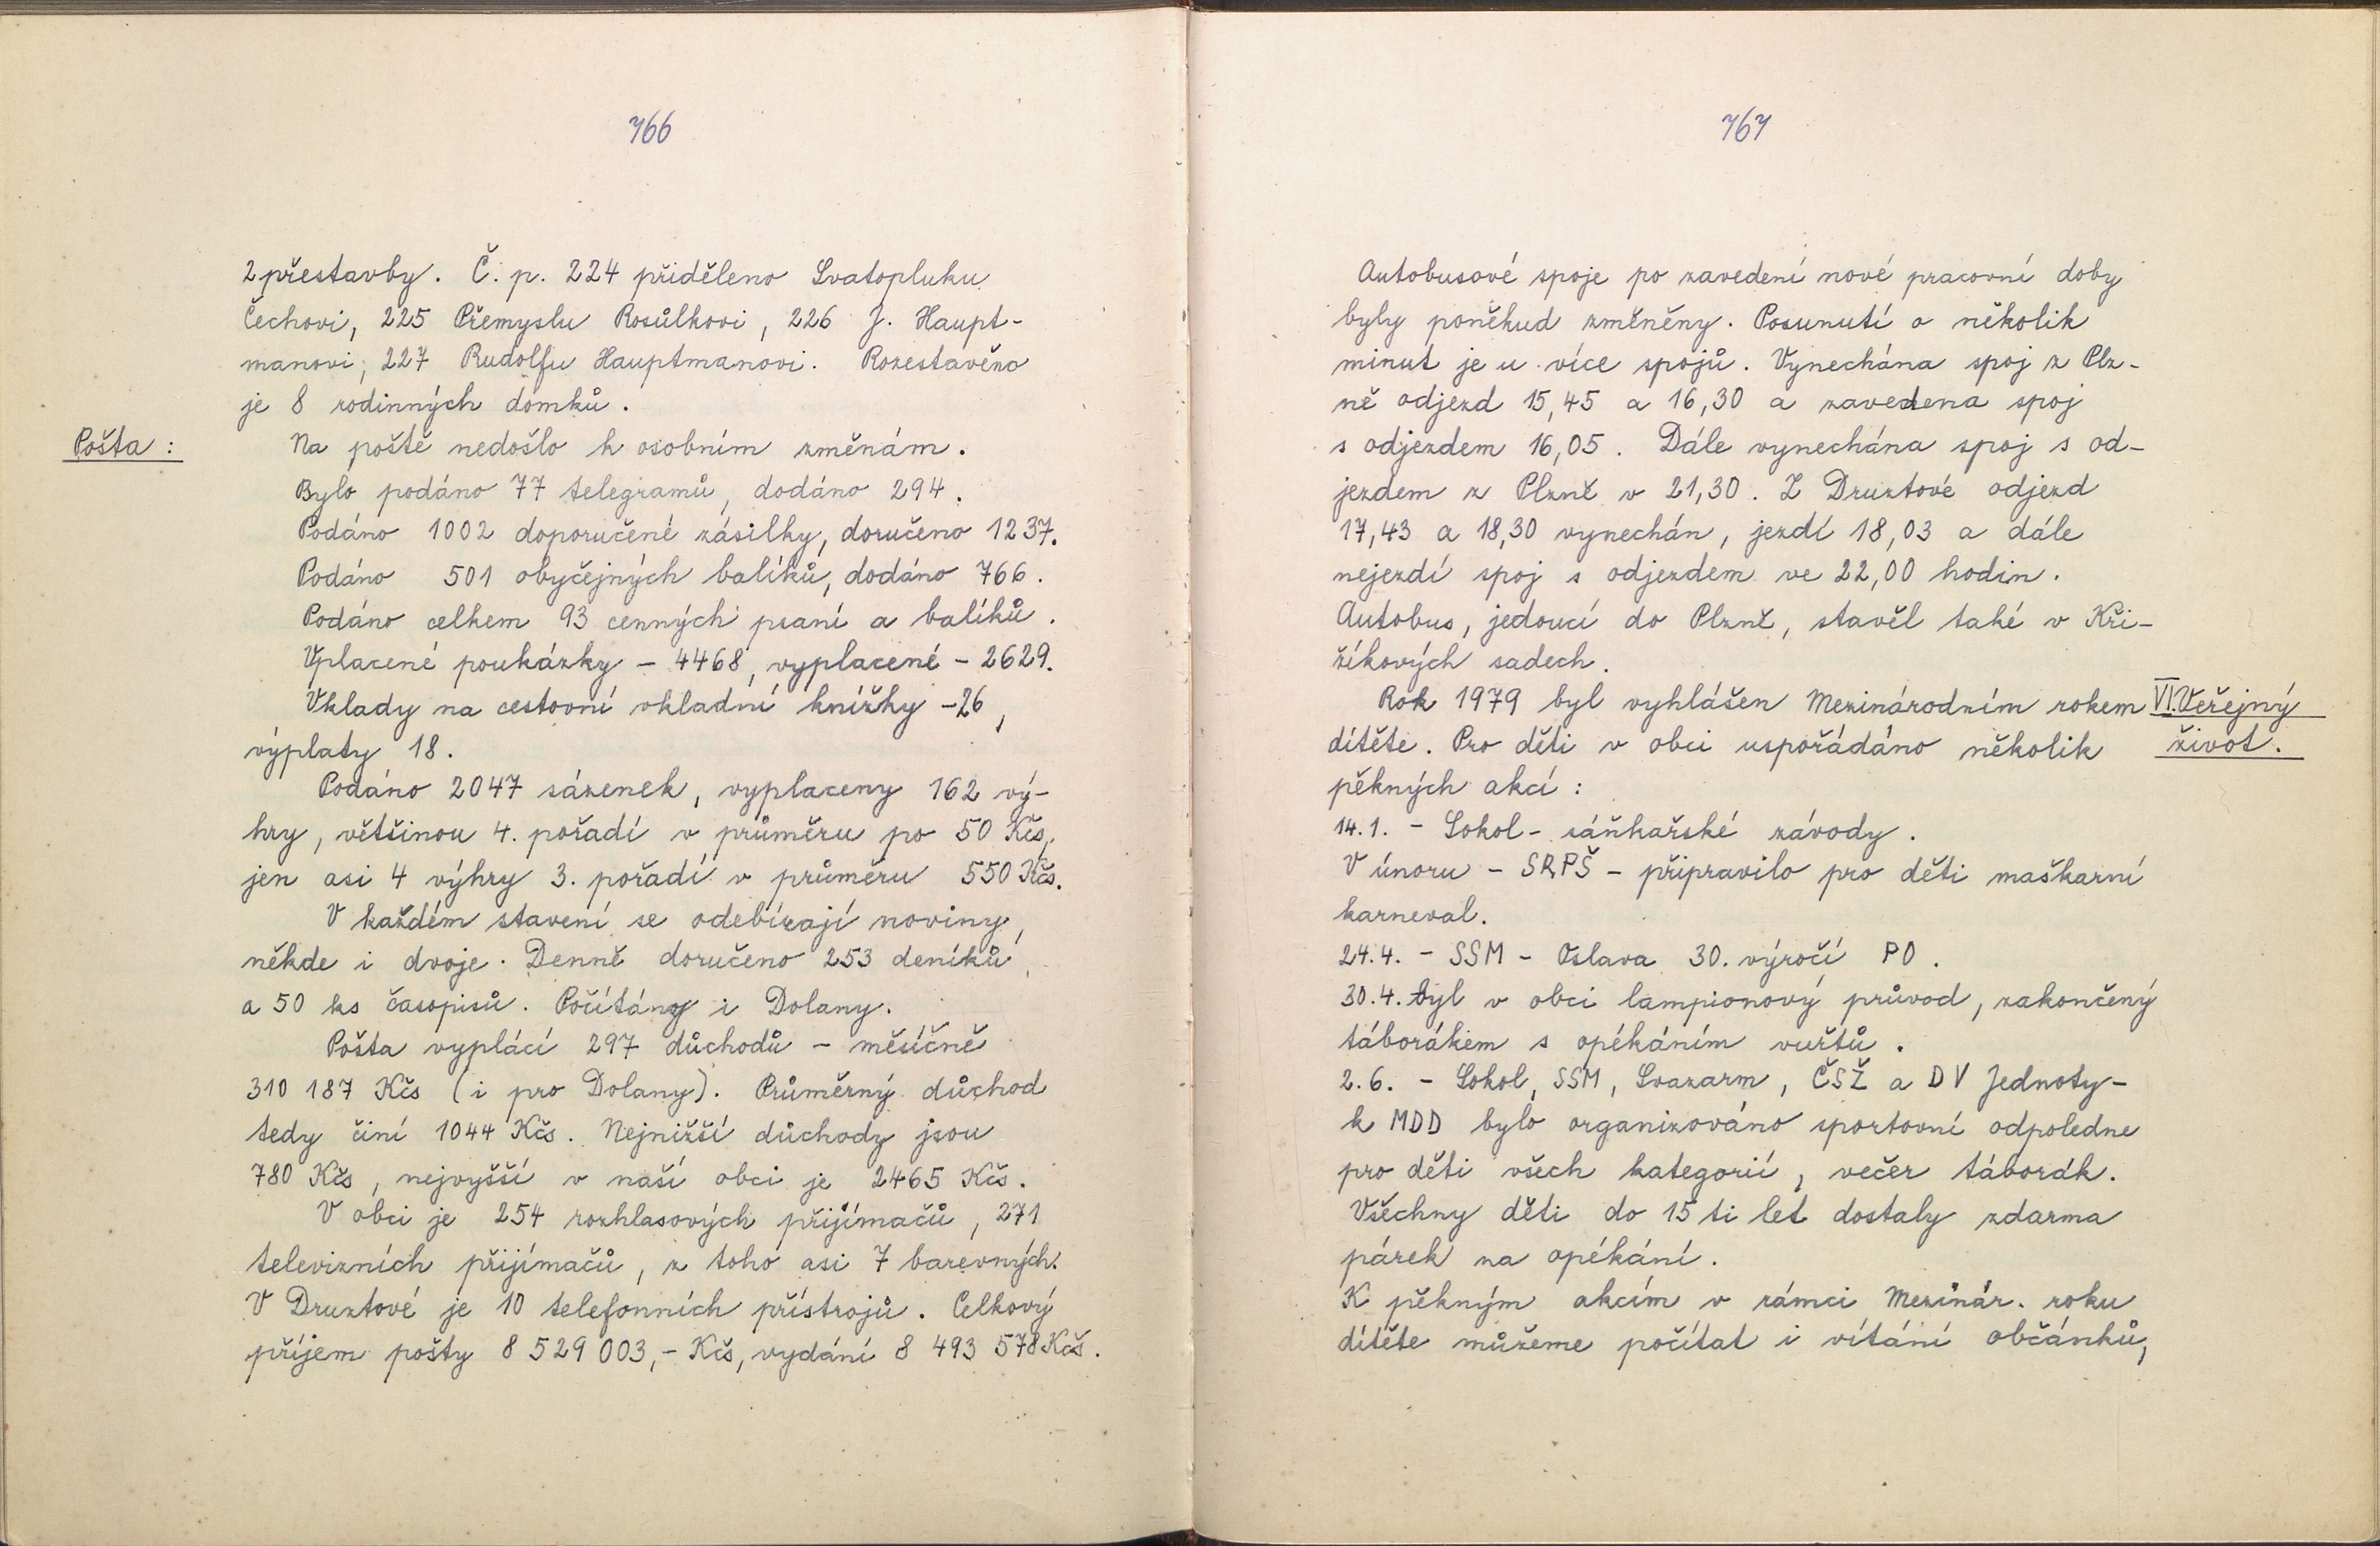 766
2 přestavby. Č. p. 224 přiděleno Svatopluku
Čechovi, 225 Přemyslu Rosůlkovi, 226 J. Haupt-
manovi, 227 Rudolfu Hauptmanovi. Rozestavěno
je 8 rodinných domků.
Pošta:
Na poště nedošlo k osobním změnám.
Bylo podáno 77 telegramů, dodáno 294.
Podáno 1002 doporučené zásilky, doručeno 1237.
Podáno 501 obyčejných balíků, dodáno 766.
Podáno celkem 93 cenných psaní a balíků.
Vplacené poukázky - 4468, vyplacené - 2629.
Vklady na cestovní vkladní knížky - 26,
výplaty 18.
Podáno 2047 sázenek, vyplaceny 162 vý-
hry, většinou 4. pořadí v průměru po 50 Kčs,
jen asi 4 výhry 3. pořadí v průměru 550 Kčs.
V každém stavení se odebírají noviny,
někde i dvoje. Denně doručeno 253 deníků
a 50 ks časopisů. Počítány i Dolany.
Pošta vyplácí 297 důchodů - měsíčně
310 187 Kčs (i pro Dolany). Průměrný důchod
tedy činí 1044 Kčs. Nejnižší důchody jsou
780 Kčs, nejvyšší v naší obci je 2465 Kčs.
V obci je 254 rozhlasových přijímačů, 271
televizních přijímačů, z toho asi 7 barevných.
V Druztové je 10 telefonních přístrojů. Celkový
příjem pošty 8 529 003,- Kčs, vydání 8 493 578 Kčs.
767
Autobusové spoje po zavedení nové pracovní doby
byly poněkud změněny. Posunutí o několik
minut je u více spojů. Vynechána spoj z Plz-
ně odjezd 15,45 a 16,30 a zavedena spoj
s odjezdem 16,05. Dále vynechána spoj s od-
jezdem z Plzně v 21,30. Z Druztové odjezd
17,43 a 18,30 vynechán, jezdí 18,03 a dále
nejezdí spoj s odjezdem ve 22,00 hodin.
Autobus, jedoucí do Plzně, stavěl také v Kři-
žíkových sadech.
Rok 1979 byl vyhlášen Mezinárodním rokem
VI. Veřejný
dítěte. Pro děti v obci uspořádáno několik
život.
pěkných akcí:
14.1. - Sokol - sáňkařské závody.
V únoru - SRPŠ - připravilo pro děti maškarní
karneval.
24.4. - SSM - Oslava 30. výročí PO.
30.4. byl v obci lampionový průvod, zakončený
táborákem s opékáním vuřtů.
2.6. - Sokol, SSM, Svazarm, ČSŽ a DV Jednoty -
k MDD bylo organizováno sportovní odpoledne
pro děti všech kategorií, večer táborák.
Všechny děti do 15 ti let dostaly zdarma
párek na opékání.
K pěkným akcím v rámci Mezinár. roku
dítěte můžeme počítat i vítání občánků,